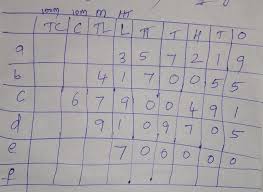 100m 10m M HT
TC C TL L TT T H T O
a 3 5 7 2 1 9
b 4 1 7 0 0 5 5
c 6 7 9 0 0 4 9 1
d 9 1 0 9 7 0 5
e 7 0 0 0 0 0
f